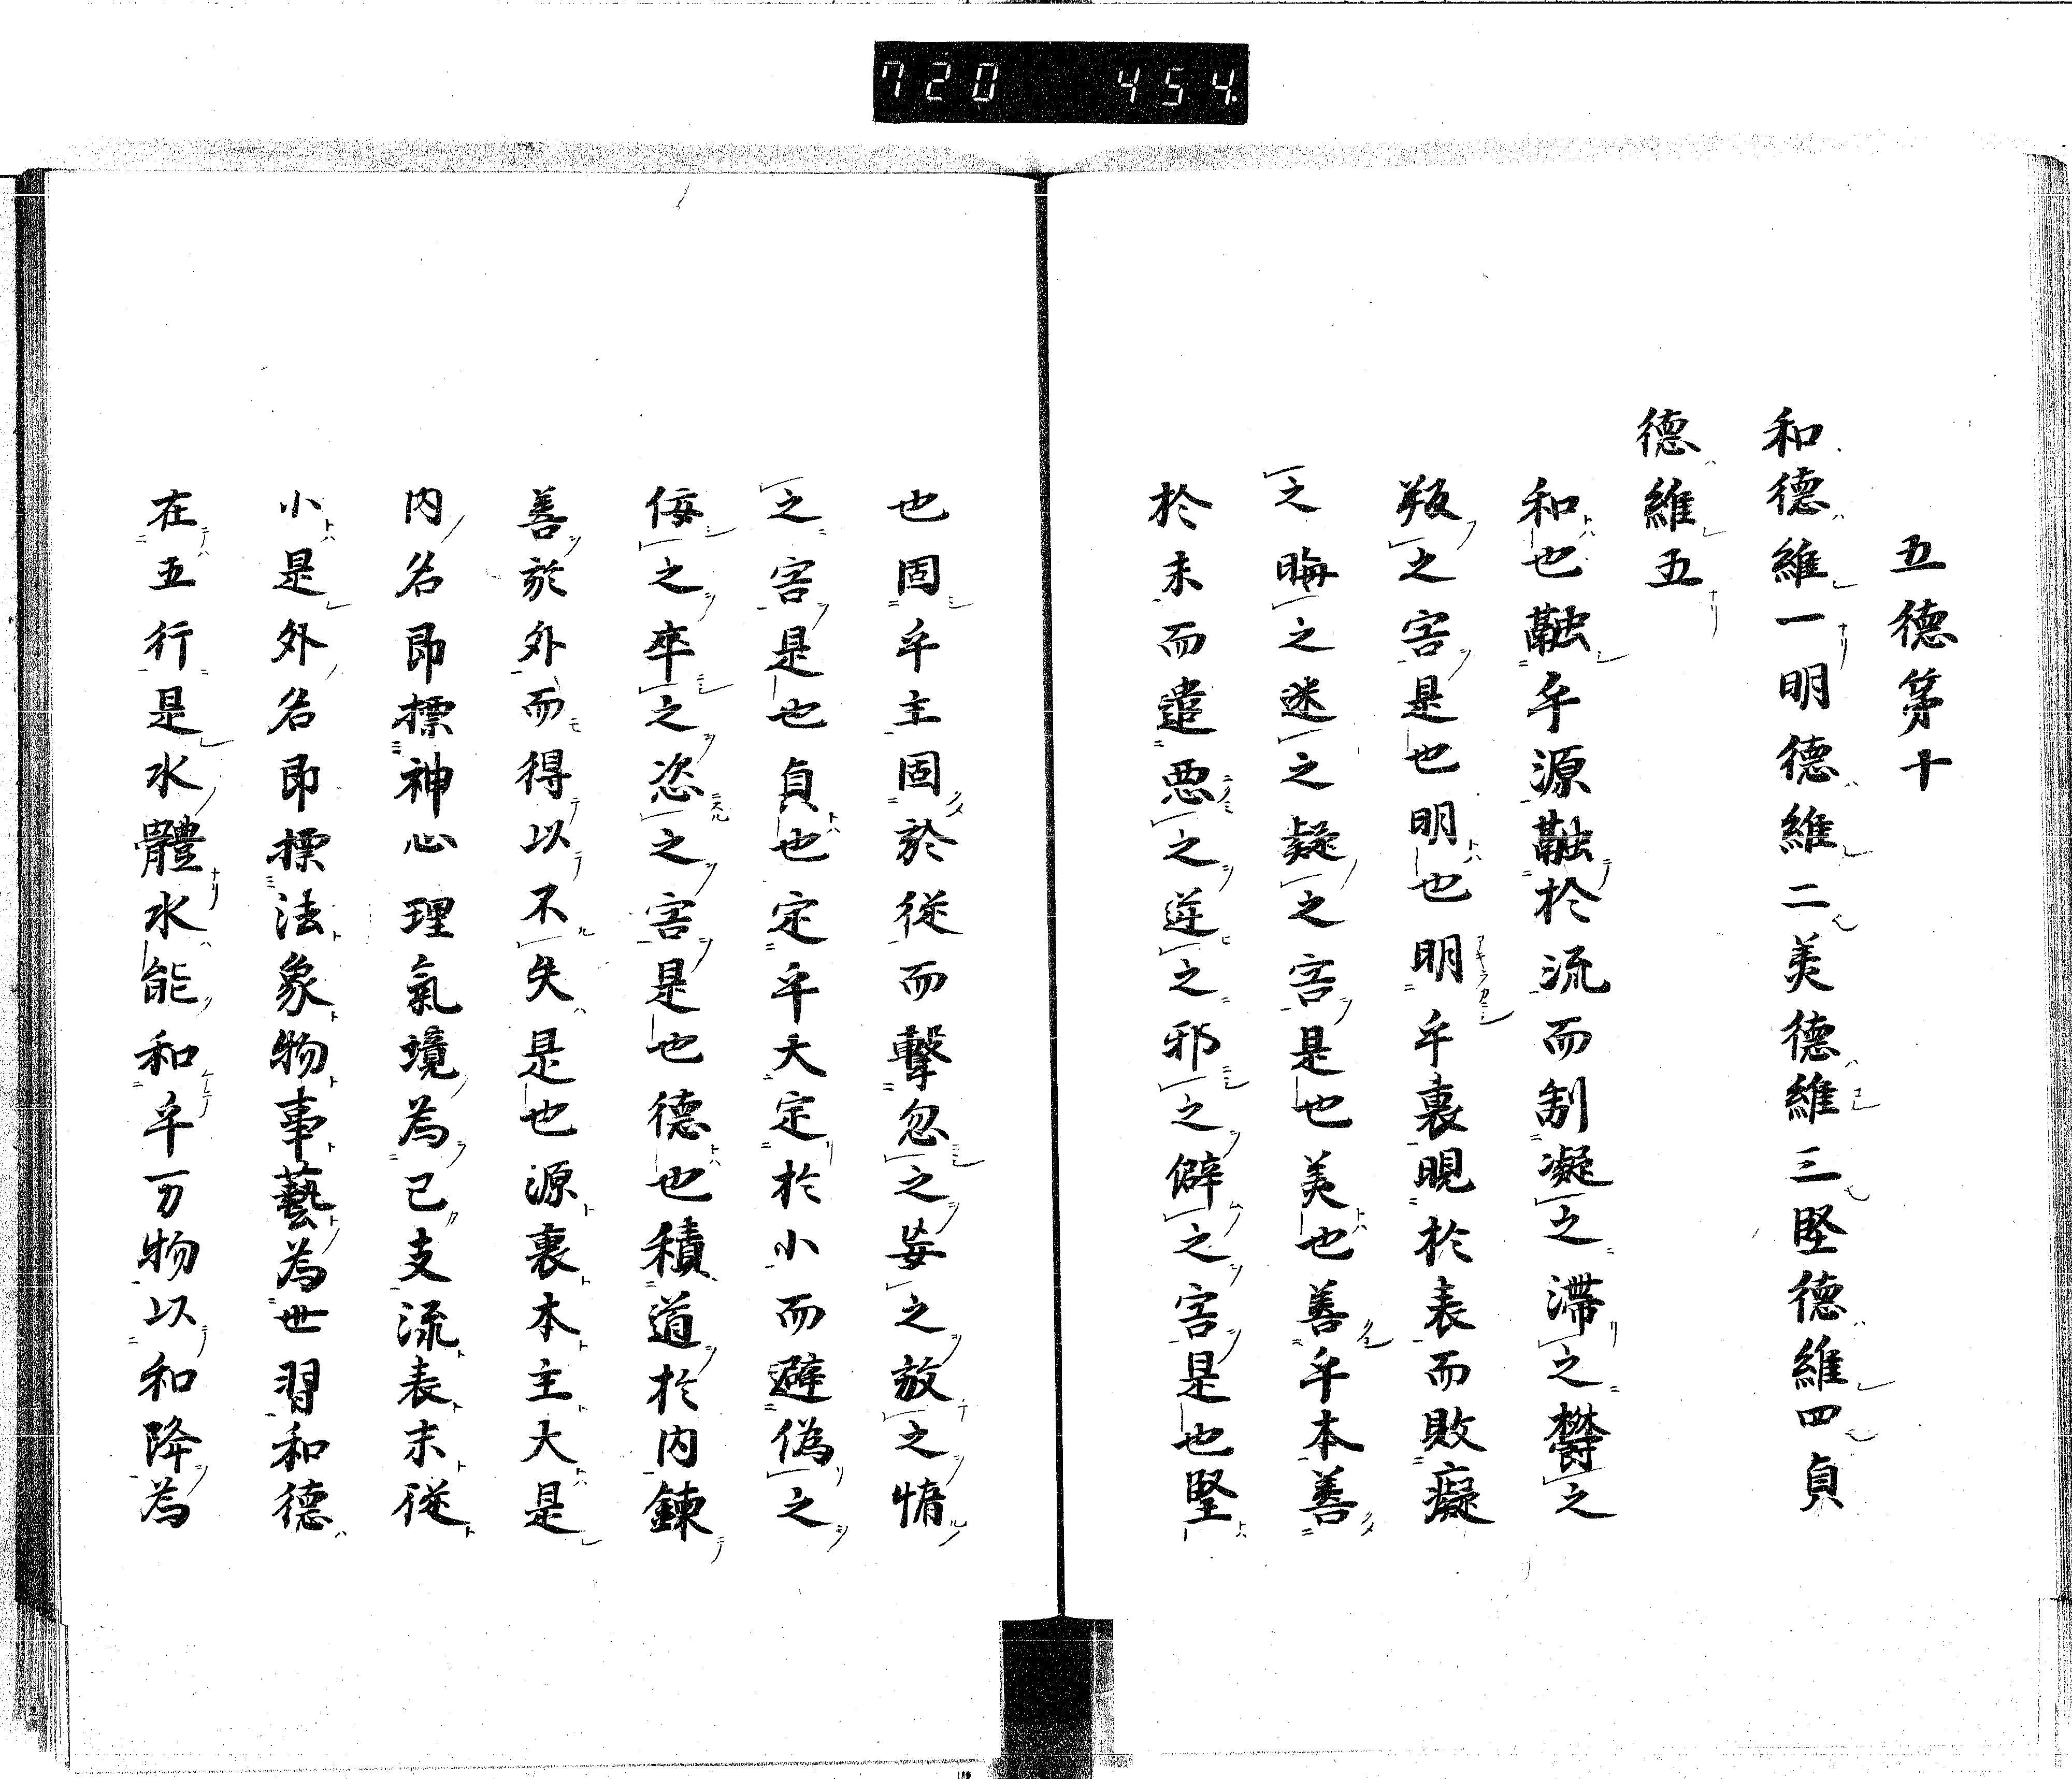 720 454
五德第十
和德維一明德維二美德維三堅德維四貞
德維五
和也融乎源融於流而制凝之滯之欝之
叛之害是也明也明乎裏睍於表而敗癡
之晦之迷之疑之害是也美也善乎本善
於末而遣惡之逆之邪之僻之害是也堅
也固乎主固於從而擊忽之妄之放之惰
之害是也貞也定乎大定於小而避偽之
佞之卒之恣之害是也德也積道於内鍊
善於外而得以不失是也源裏本主大是
内名即標神心理氣境為己支流表末從
小是外名即標法象物事藝為世習和德
在五行是水體水能和乎万物以和降為